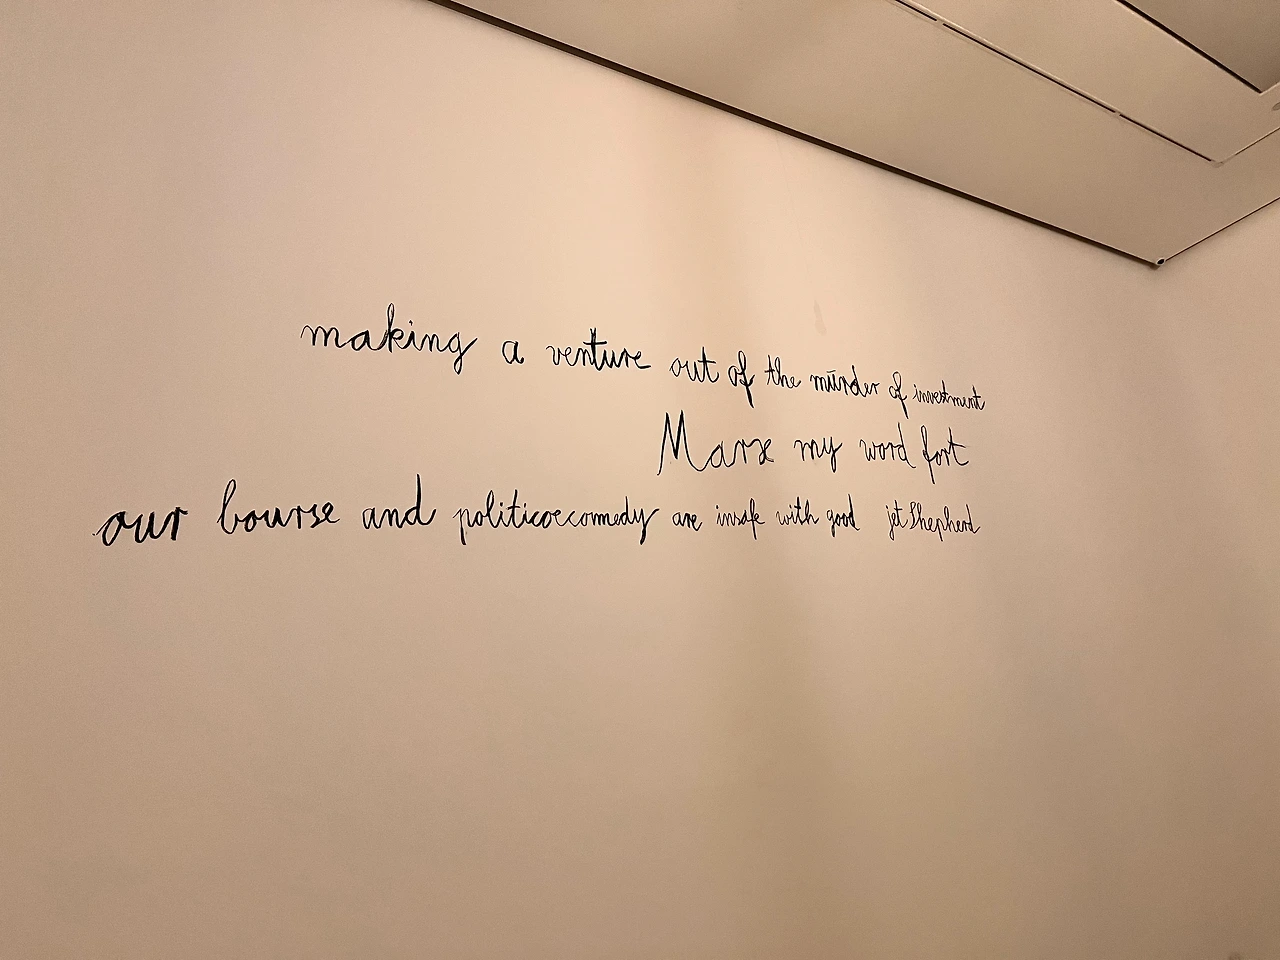 making a venture out of the mürder of investment
Marx my word fort
our bourse and politicoecomedy are insafe with good jetShepherd